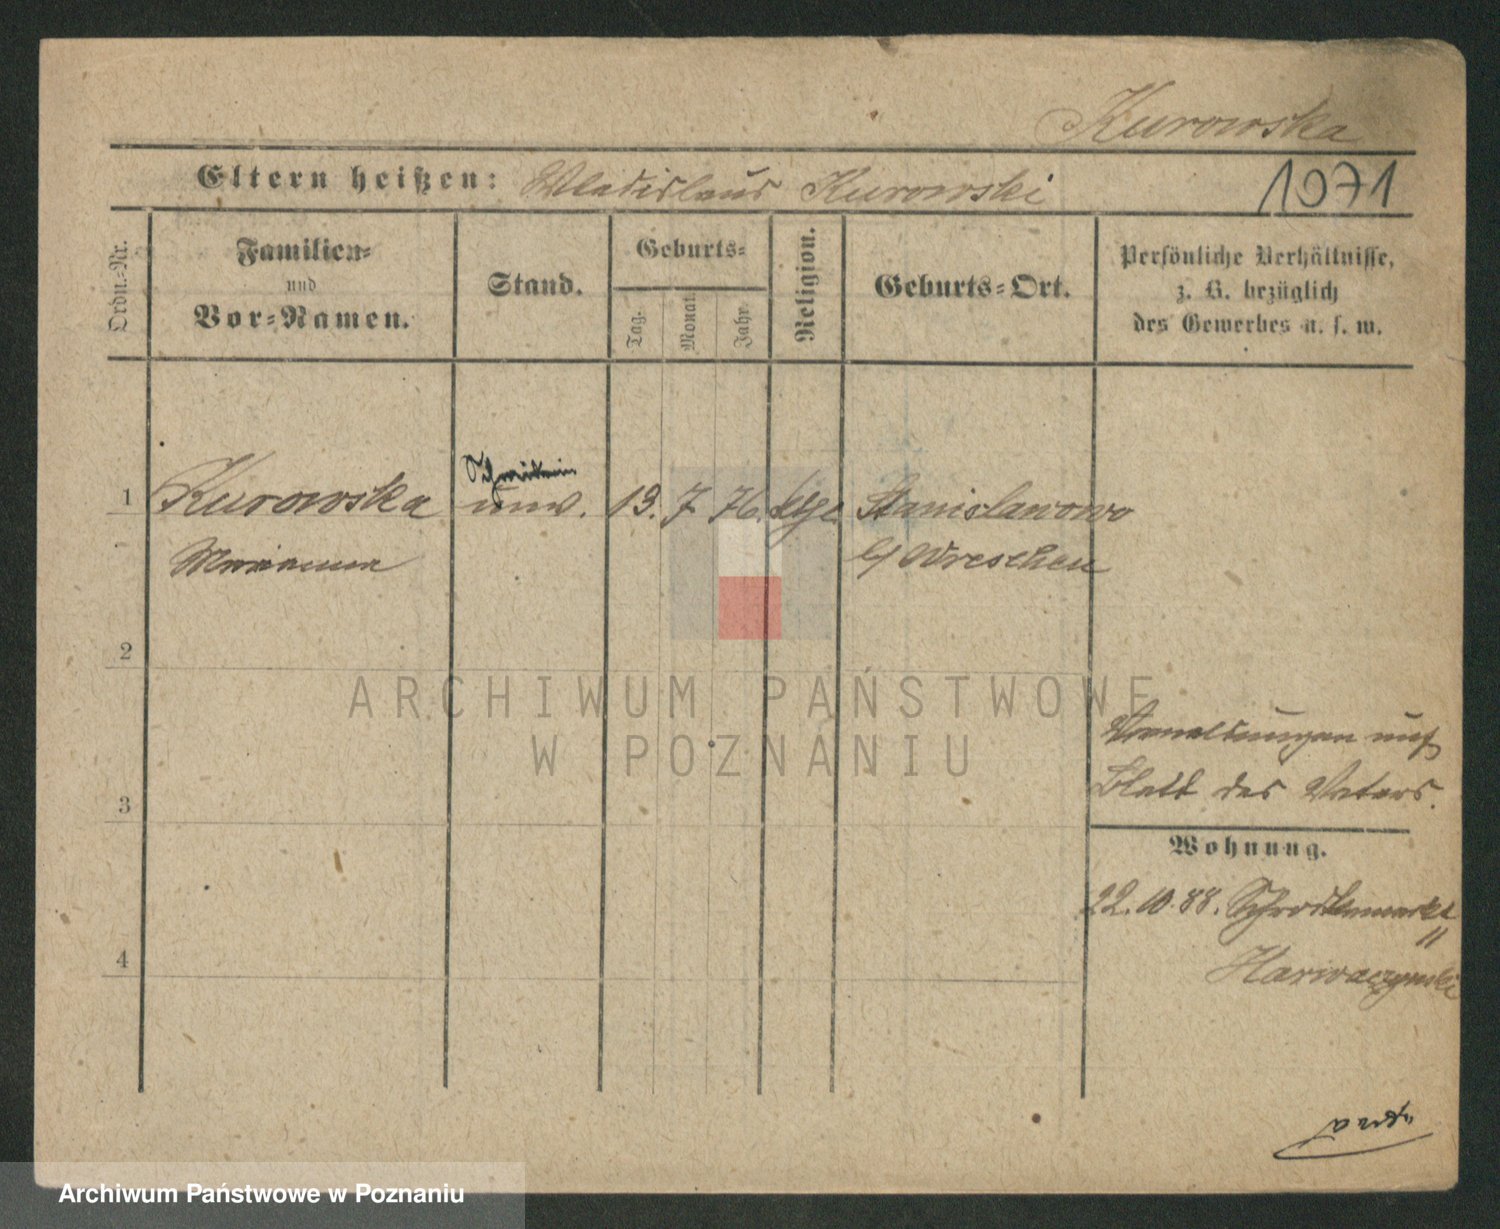 Kurowska
Eltern heißen: Wladislaus Kurowski
1071
Ordn.-Nr.
Familien-
und
Vor-Namen.
Stand.
Geburts-
Tag.
Monat.
Jahr.
Religion.
Geburts-Ort.
Persönliche Verhältnisse,
z. B. bezüglich
des Gewerbes u. s. w.
1 Kurowska unv. 13. 7. 76. Stanislawowo
Marianna Wreschen
2
3
4
ARCHIWUM PAŃSTWOWE
W POZNANIU
Blatt des Vaters.
Wohnung.
22.10.88. Schrodkamarkt
11
Archiwum Państwowe w Poznaniu